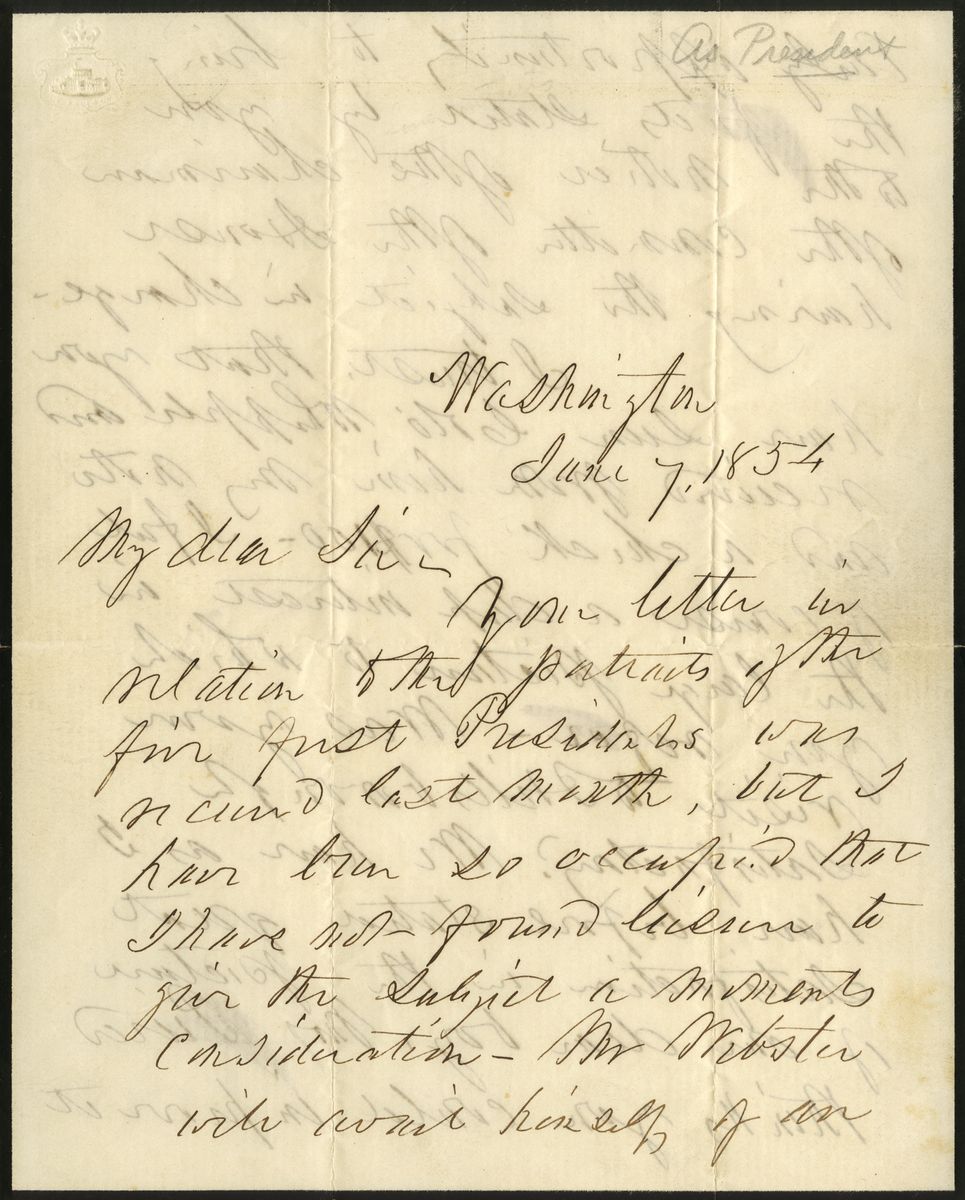 As President
Washington
June 7, 1854
My dear Sir –
Your letter in
relation to the portraits of the
five first Presidents was
received last month, but I
have been so occupied that
I have not found leisure to
give the subject a moments
consideration – Mr Webster
will avail himself of an